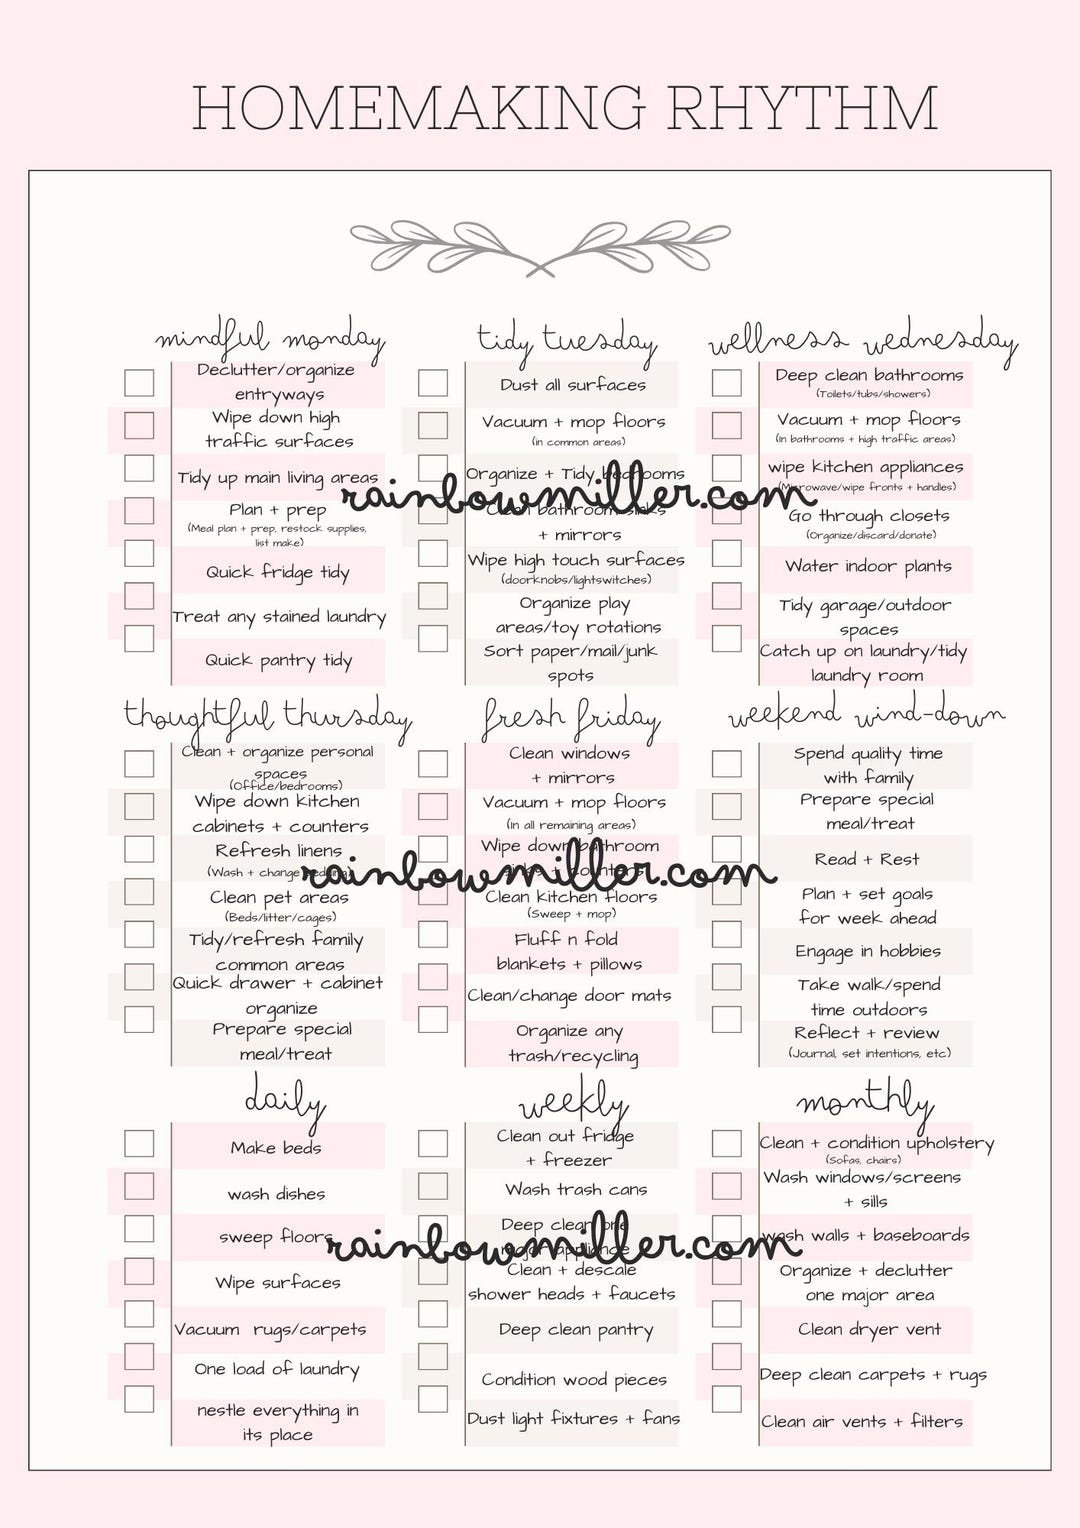 HOMEMAKING RHYTHM
mindful monday
Declutter/organize
entryways
Wipe down high
traffic surfaces
Tidy up main living areas
Plan + prep
(Meal plan + prep, restock supplies,
list make)
Quick fridge tidy
Treat any stained laundry
Quick pantry tidy
tidy tuesday
Dust all surfaces
Vacuum + mop floors
(in common areas)
Organize + Tidy bedrooms
Clean bathroom sinks
+ mirrors
Wipe high touch surfaces
(doorknobs/lightswitches)
Organize play
areas/toy rotations
Sort paper/mail/junk
spots
wellness wednesday
Deep clean bathrooms
(Toilets/tubs/showers)
Vacuum + mop floors
(In bathrooms + high traffic areas)
wipe kitchen appliances
(Microwave/wipe fronts + handles)
Go through closets
(Organize/discard/donate)
Water indoor plants
Tidy garage/outdoor
spaces
Catch up on laundry/tidy
laundry room
rainbowmiller.com
thoughtful thursday
Clean + organize personal
spaces
(Office/bedrooms)
Wipe down kitchen
cabinets + counters
Refresh linens
(Wash + change bedding)
Clean pet areas
(Beds/litter/cages)
Tidy/refresh family
common areas
Quick drawer + cabinet
organize
Prepare special
meal/treat
fresh friday
Clean windows
+ mirrors
Vacuum + mop floors
(In all remaining areas)
Wipe down bathroom
sinks + counters
Clean kitchen floors
(Sweep + mop)
Fluff n fold
blankets + pillows
Clean/change door mats
Organize any
trash/recycling
weekend wind-down
Spend quality time
with family
Prepare special
meal/treat
Read + Rest
Plan + set goals
for week ahead
Engage in hobbies
Take walk/spend
time outdoors
Reflect + review
(Journal, set intentions, etc)
rainbowmiller.com
daily
Make beds
wash dishes
sweep floors
Wipe surfaces
Vacuum rugs/carpets
One load of laundry
nestle everything in
its place
weekly
Clean out fridge
+ freezer
Wash trash cans
Deep clean one
major appliance
Clean + descale
shower heads + faucets
Deep clean pantry
Condition wood pieces
Dust light fixtures + fans
monthly
Clean + condition upholstery
(Sofas, chairs)
Wash windows/screens
+ sills
wash walls + baseboards
Organize + declutter
one major area
Clean dryer vent
Deep clean carpets + rugs
Clean air vents + filters
rainbowmiller.com